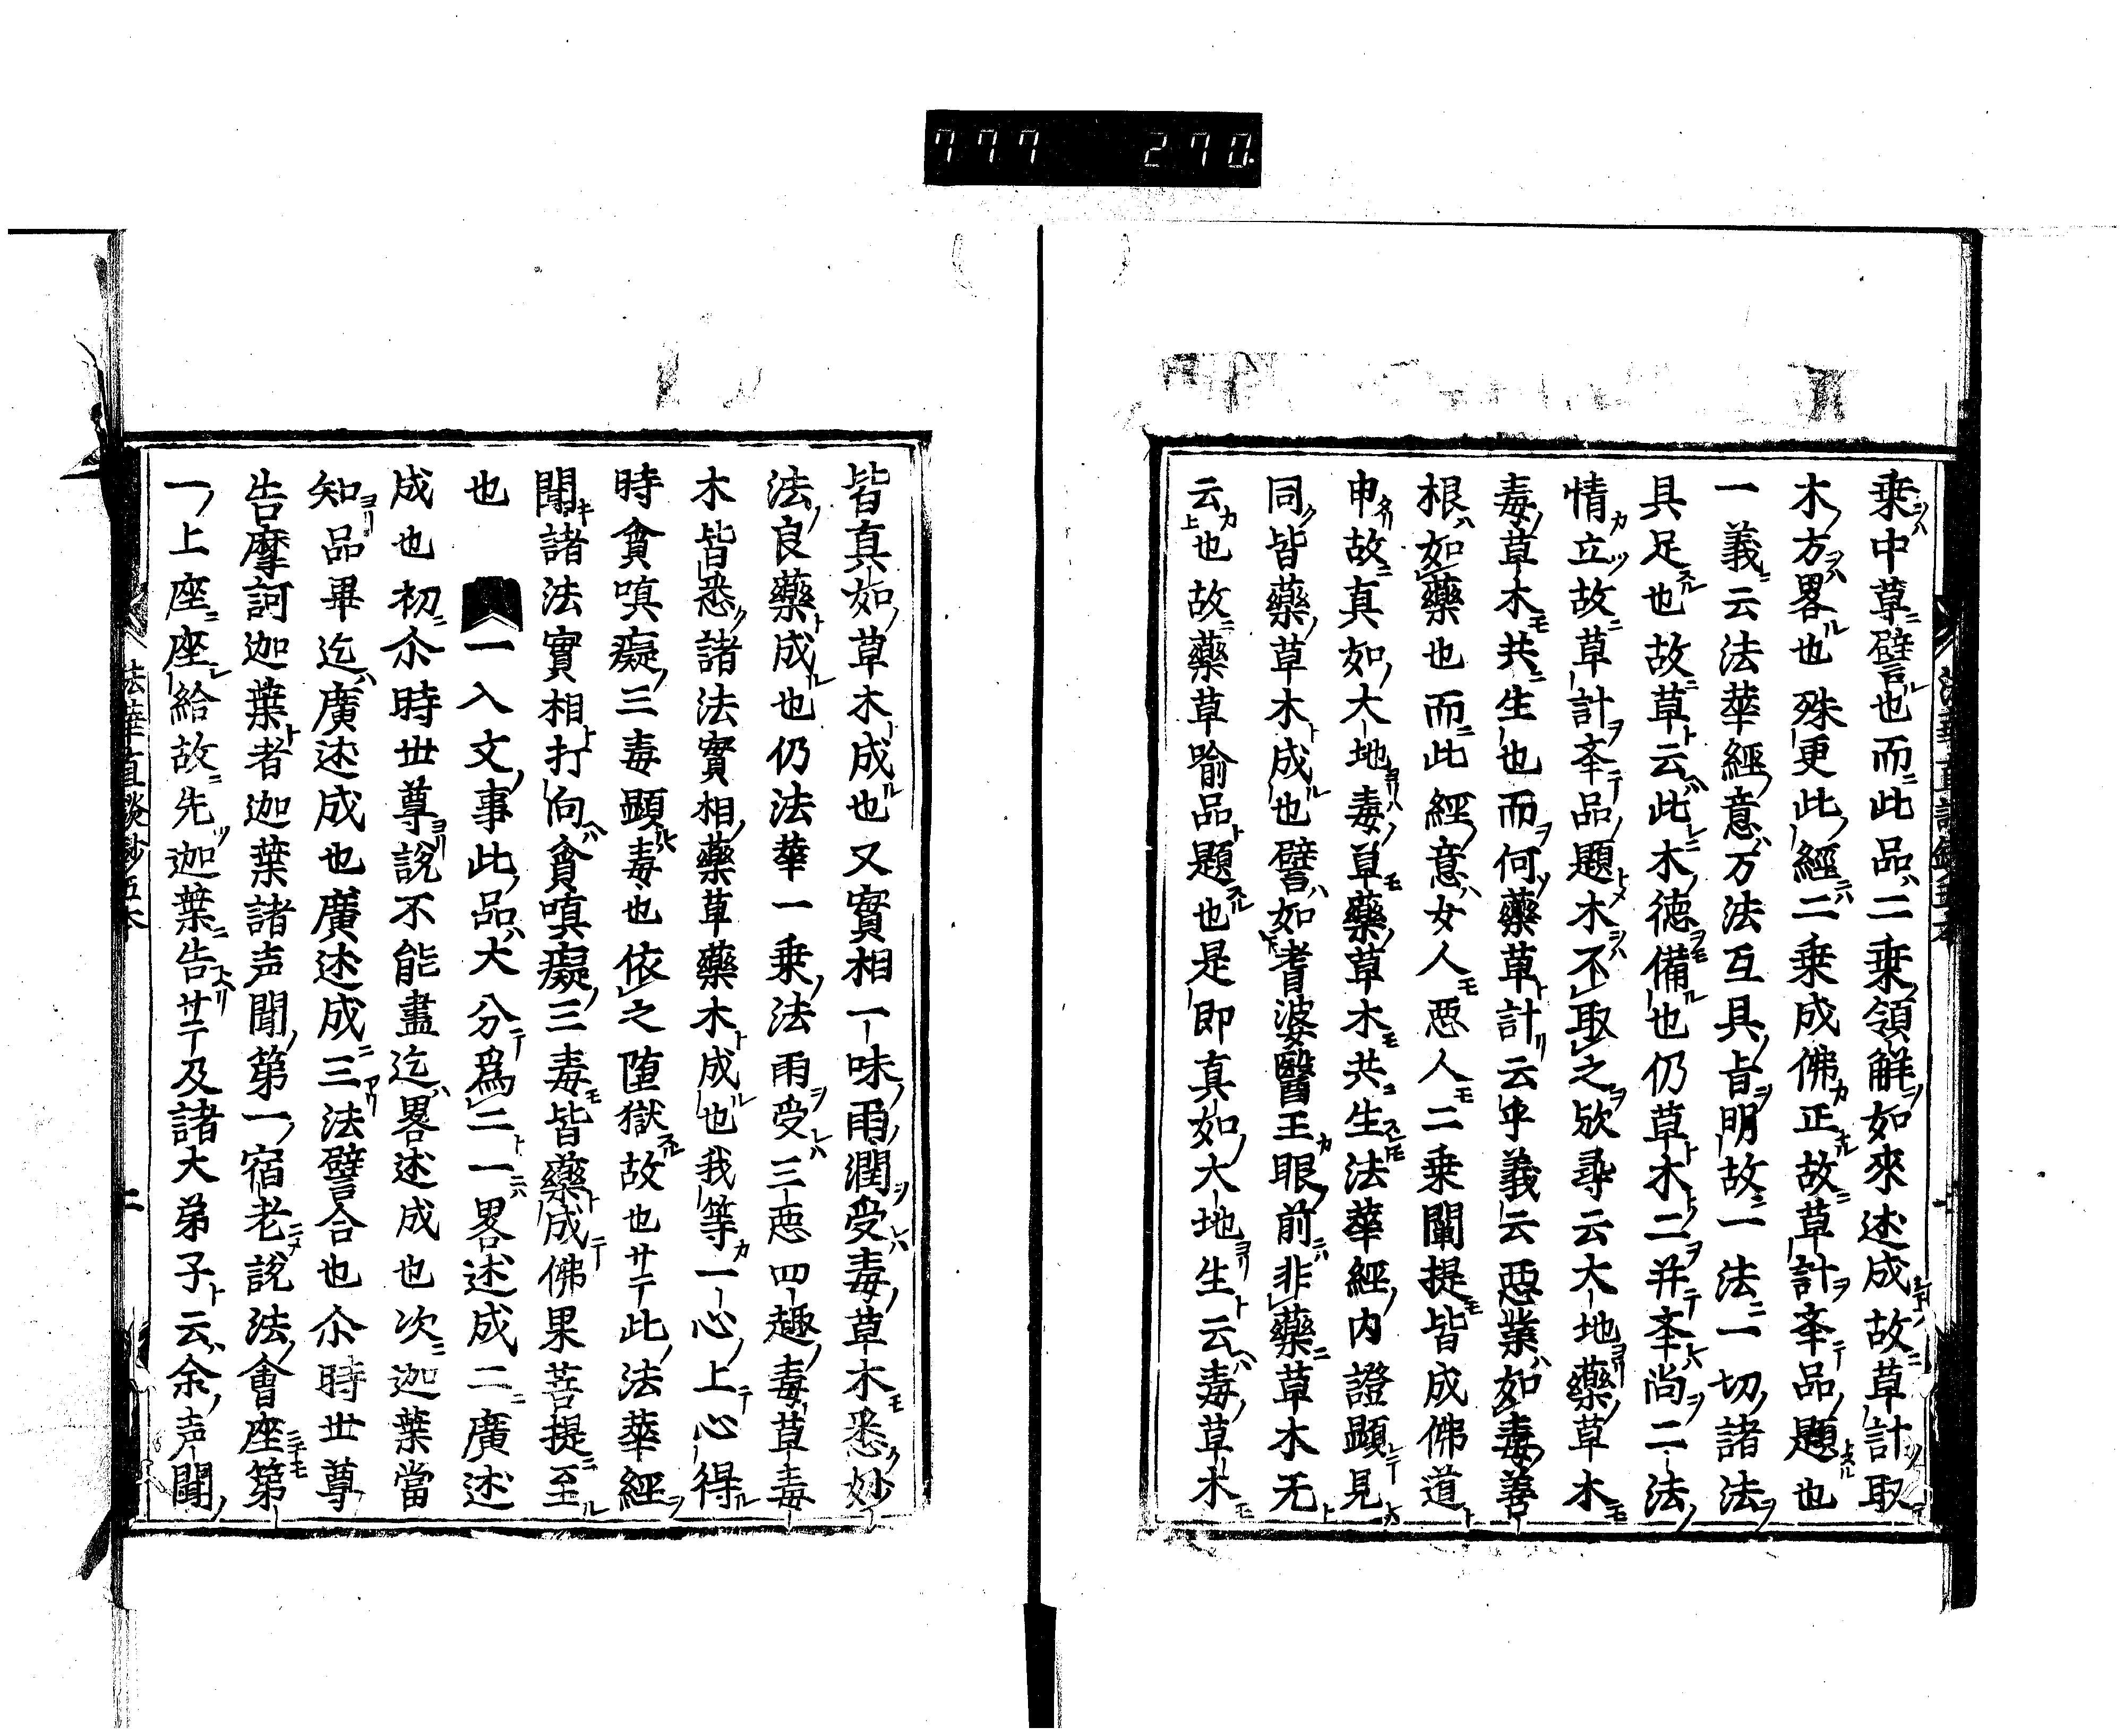 777 270.
乗中草譬也而此品二乗領解如來述成故草計取
木方畧也殊更此經二乗成佛正故草計夲品題也
一義云法華經意万法互具旨明故一法一切諸法
具足也故草云此木徳備也仍草木二并夲尚二法
情立故草計夲品題木不取之欤尋云大地藥草木
毒草木共生也而何藥草計云乎義云惡業如毒善
根如藥也而此經意女人悪人二乗闡提皆成佛道
申故真如大地毒草藥草木共生法華經内證顯見
同皆藥草木成也譬如耆婆醫王眼前非藥草木无
云也故藥草喻品題也是即真如大地生云毒草木
皆真如草木成也又實相一味雨潤受毒草木悉妙
法良藥成也仍法華一乗法雨受三悪四趣毒草毒
木皆悉諸法實相藥草藥木成也我等一心上心得
時貪嗔癡三毒顯毒也依之堕獄故也サテ此法華經
聞諸法實相打向貪嗔癡三毒皆藥成佛果菩提至
也 一入文事此品大分爲二一畧述成二廣述
成也初尒時世尊說不能盡迄畧述成也次迦葉當
知品畢迄廣述成也廣述成三法譬合也尒時世尊
告摩訶迦葉者迦葉諸声聞第一宿老說法會座第
一上座座給故先迦葉告サテ及諸大弟子云余声聞
法華直談鈔五本 二